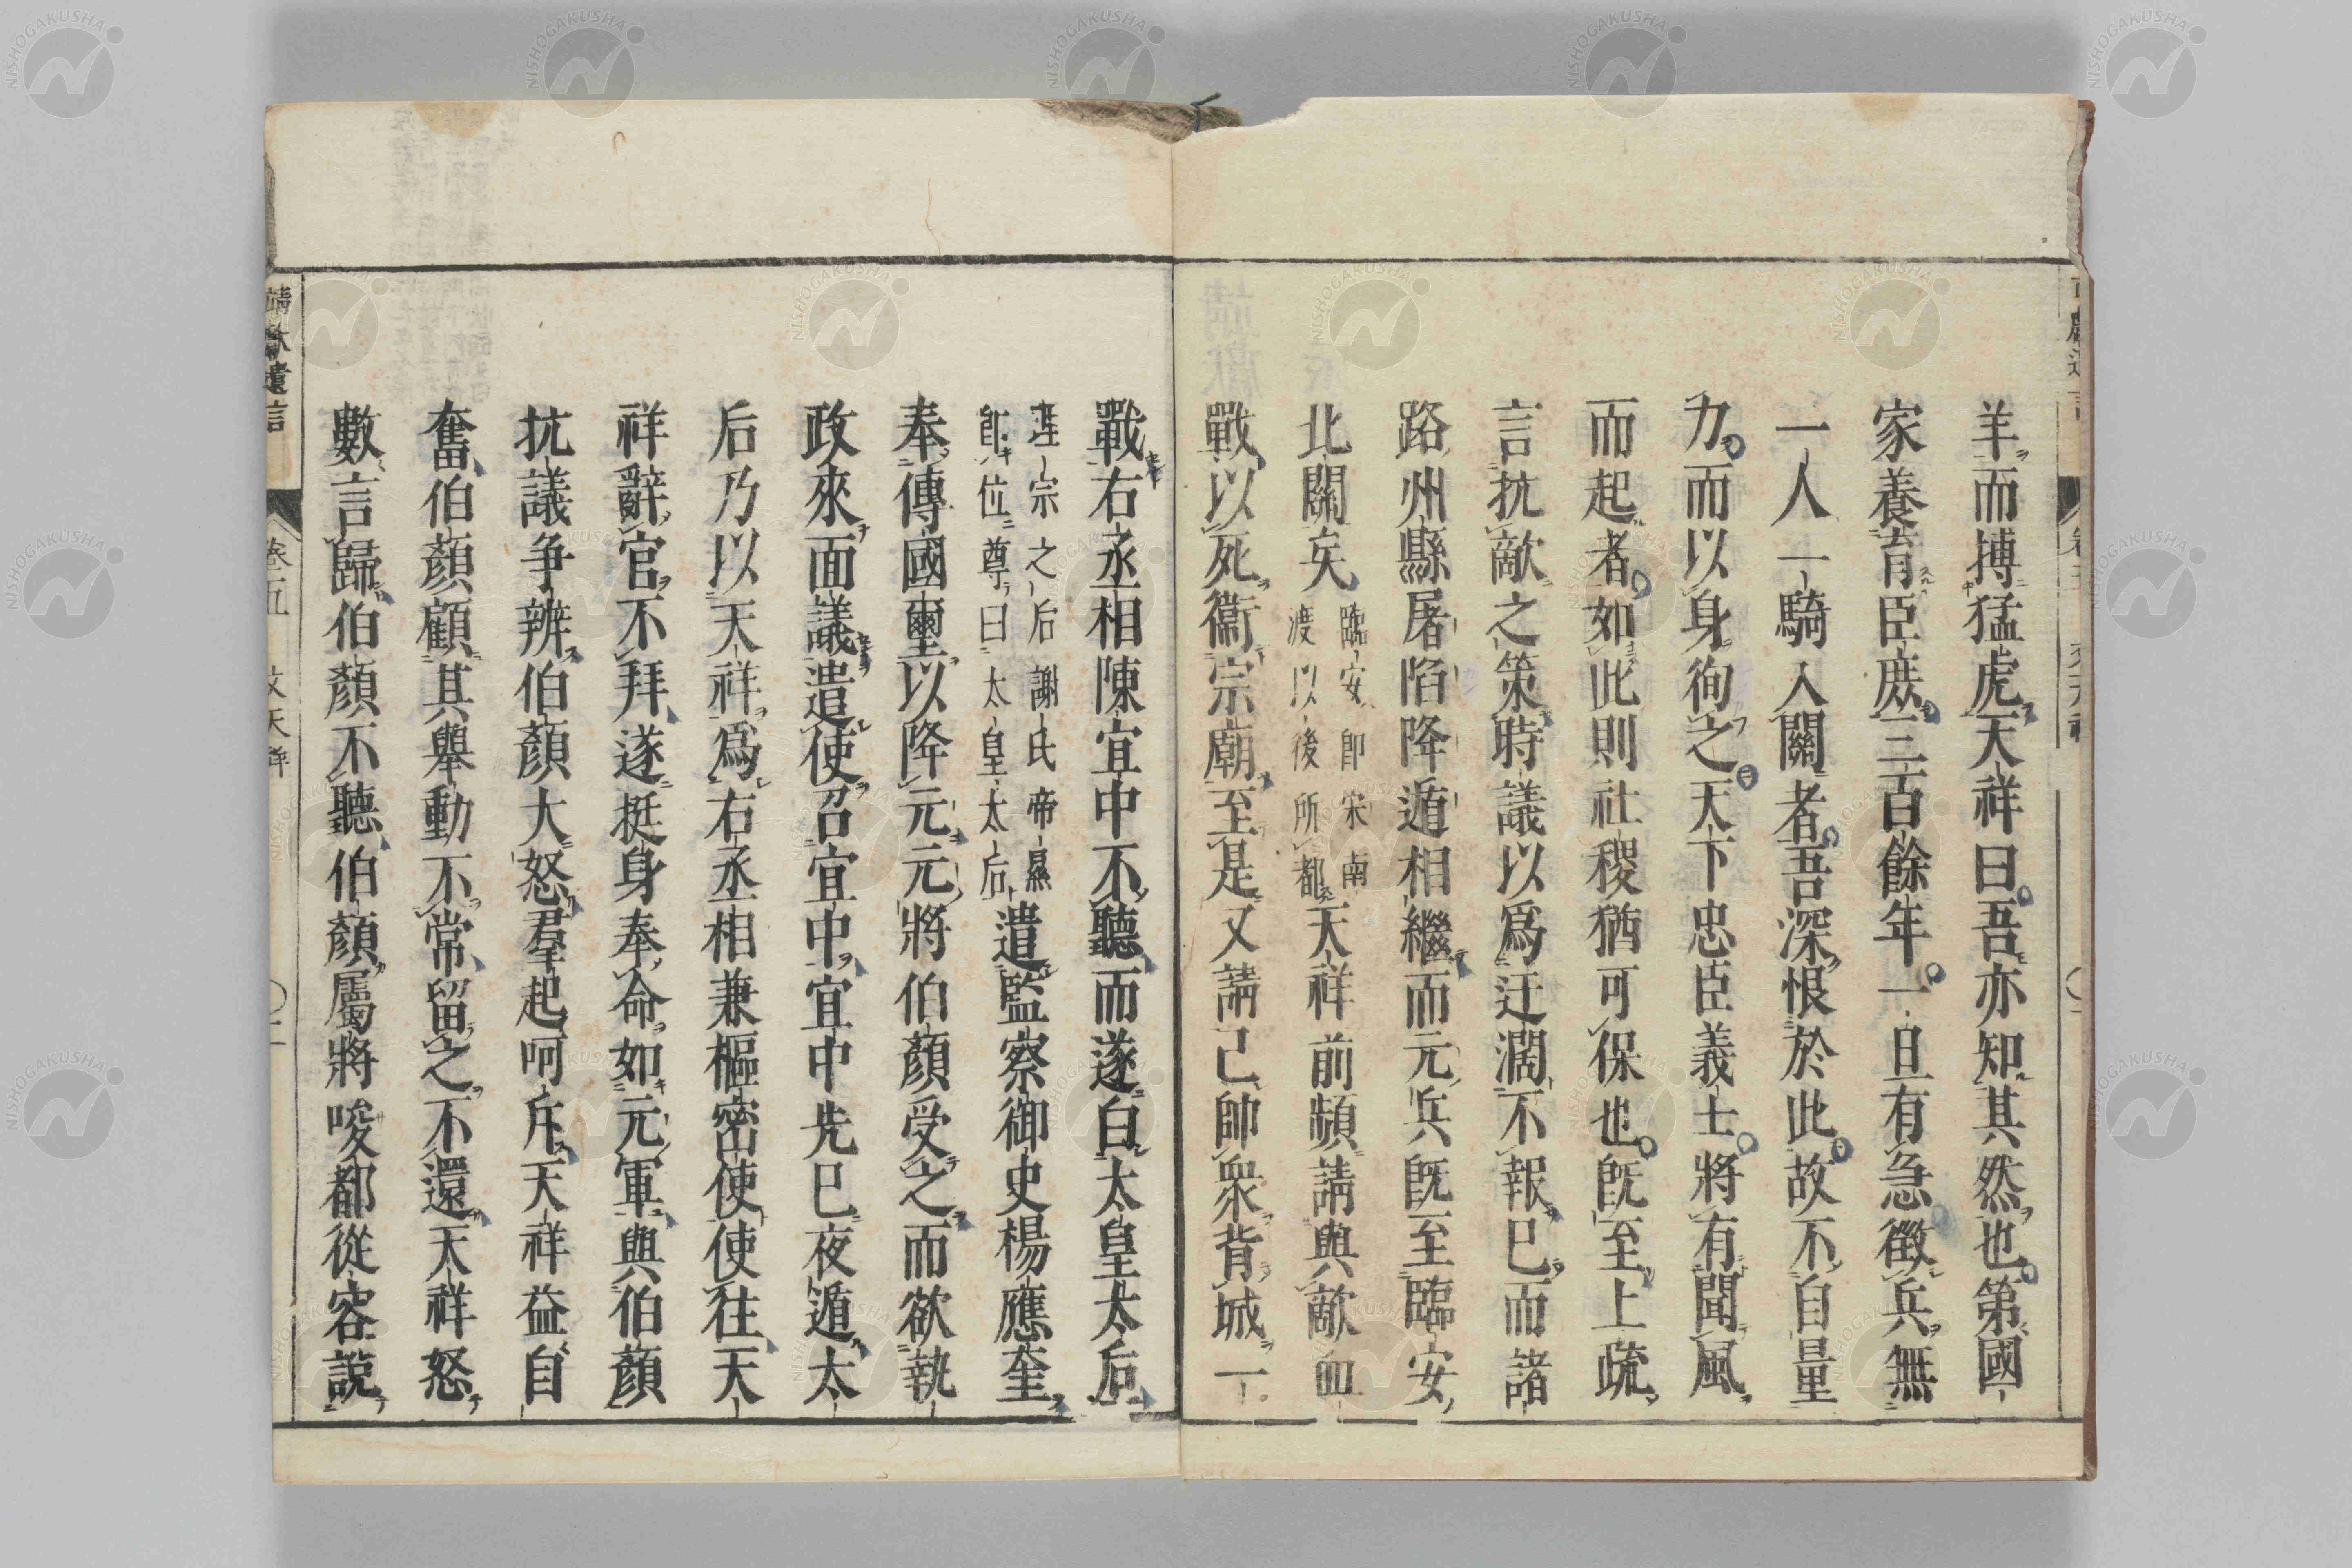 羊而搏猛虎天祥曰吾亦知其然也第國
家養育臣庶三百餘年一旦有急徵兵無
一人一騎入關者吾深恨於此故不自量
力而以身徇之天下忠臣義士將有聞風
而起者如此則社稷猶可保也既至上疏
言抗敵之策時議以爲迂濶不報已而諸
路州縣屠陷降遁相繼而元兵既至臨安
北關矣
臨安卽宋南
渡以後所都
天祥前頻請與敵血
戰以死衞宗廟至是又請己帥衆背城一
戰右丞相陳宜中不聽而遂白太皇太后
理宗之后謝氏帝㬎
卽位尊曰太皇太后
遣監察御史楊應奎
奉傳國璽以降元元將伯顏受之而欲執
政來面議遣使召宜中宜中先已夜遁太
后乃以天祥爲右丞相兼樞密使使往天
祥辭官不拜遂挺身奉命如元軍與伯顏
抗議爭辨伯顏大怒羣起呵斥天祥益自
奮伯顏顧其舉動不常留之不還天祥怒
數言歸伯顏不聽伯顏屬將唆都從容說
靖獻遺言
卷五
文天祥
NISHOGAKUSHA